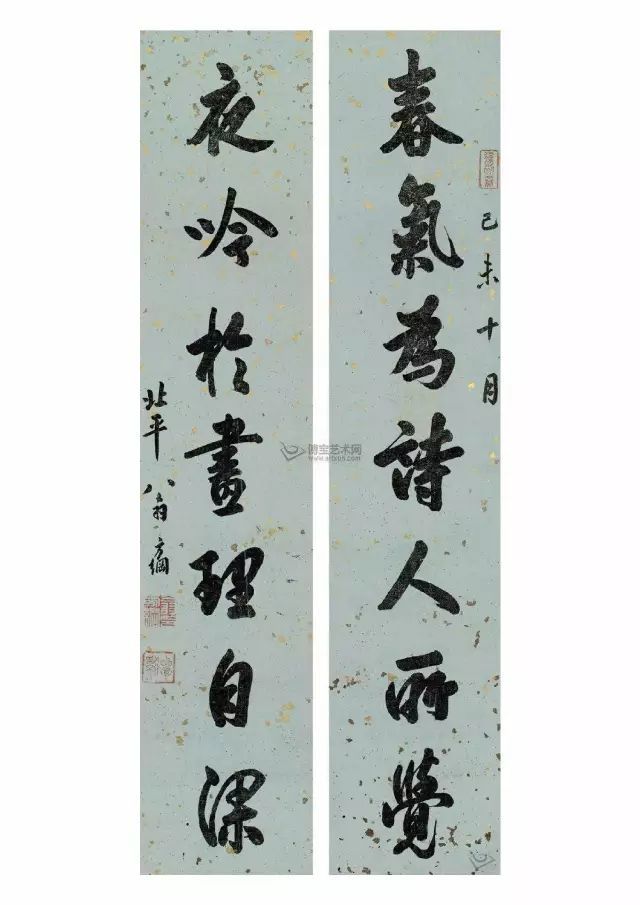 春氣為詩人所覺
己未十月
夜吟於畫理自深
北平翁方綱
傅宝艺术网